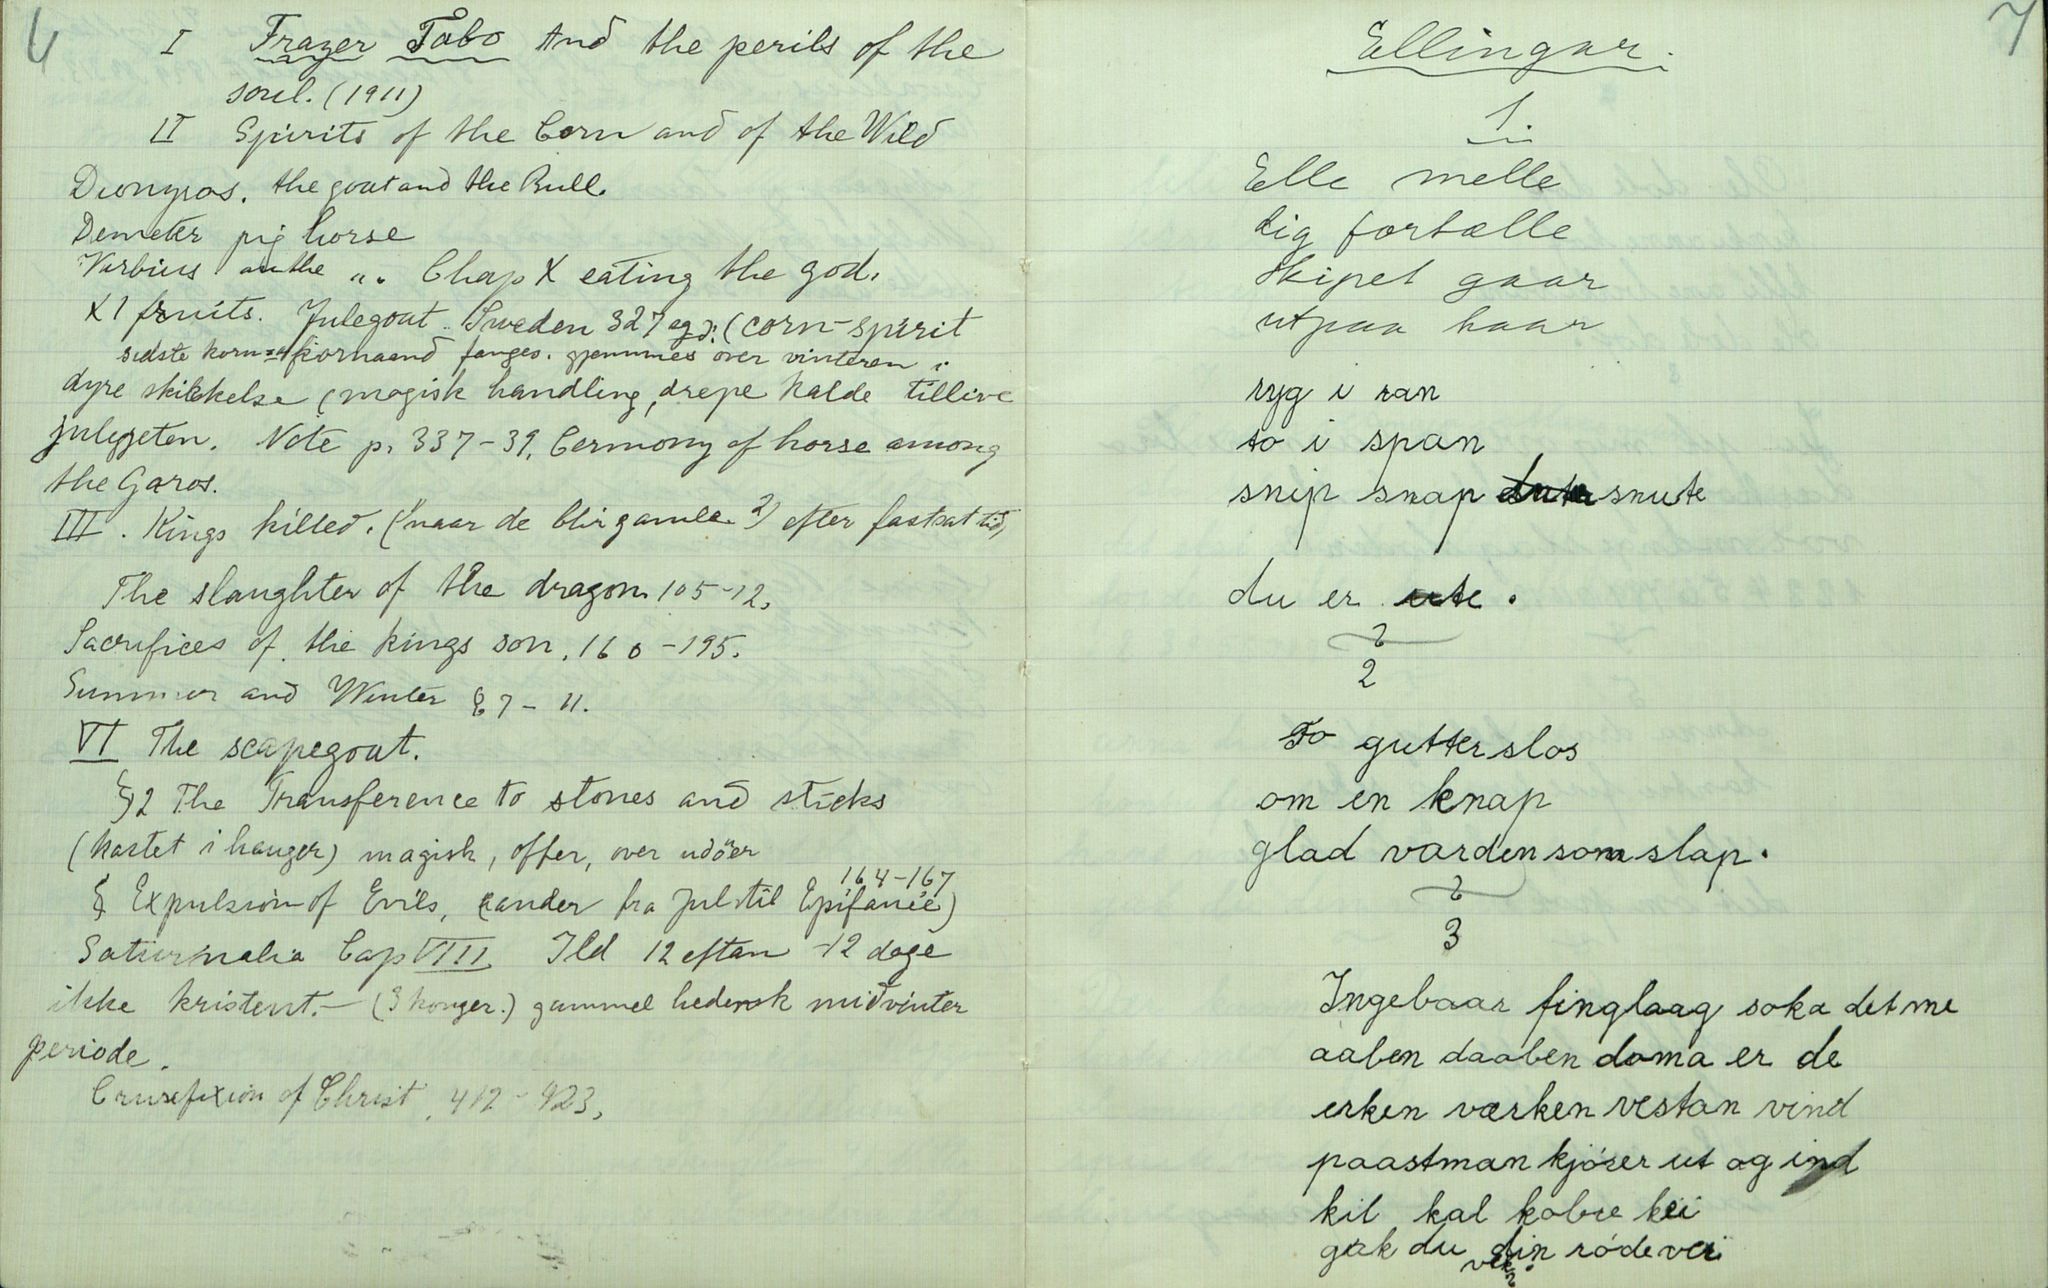 6
I Frazer Tåbo And the perils of the
soul. (1911)
II Spirits of the Corn and of the Wild
Dionysos. the goat and the Bull.
Demeter pig horse
Virbius and the „. Chap X eating the god.
XI fruits. Julegoat. Sweden 327 og (corn-spirit
sidste korn kornaand fanges. gjemmes over vinteren i
dyre skikkelse (magisk handling, drepe kalde tillive
julegeten. Note p. 337-39. Cermony of horse among
the Garos.
III. Kings killed. (1 naar de blir gamle 2) efter fastsat tid,
The slaughter of the dragon 105-12.
Sacrifices of the kings son. 160-195.
Summer and Winter § 7-11.
VI The scapegoat.
§ 2 The Transference to stones and sticks
(kastet i hauger) magisk, offer, over
164-167
§ Expulsion of Evils, (aander fra jul til Epifanie)
Saturnalia Cap VIII Ild 12 eftan 12 dage
ikke kristent.- (3 konger.) gammel hedensk midvinter
periode.
Crusefixion of Christ. 412-423.
7
Ellingar.
1.
Elle melle
dig fortælle
skipet gaar
utpaa haar
ryg i ran
to i span
snip snap snute
du er ute.
2
To gutter slos
om en knap
glad varden som slap.
3
Ingebaar finglaag soka det me
aaben daaben doma er de
erken værken vestan vind
paastman kjörer ut og ind
kil kal kobre kei
gak du din röde vei